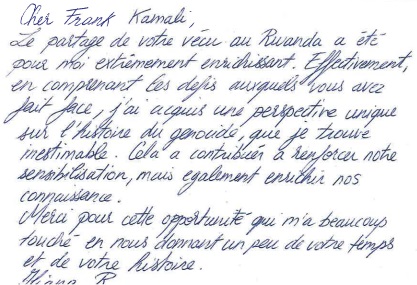 Cher Frank Kamali,
Le partage de votre vécu au Rwanda a été
pour moi extrêmement enrichissant. Effectivement,
en comprenant les défis auxquels vous avez
fait face, j'ai acquis une perspective unique
sur l'histoire du génocide, que je trouve
inestimable. Cela a contribuén à renforcer notre
sensibilisation, mais egalement enrichir nos
connaissance.
Merci pour cette opportunité qui m'a beaucoup
touché en nous donnant un peu de votre temps
et de votre histoire.
R.